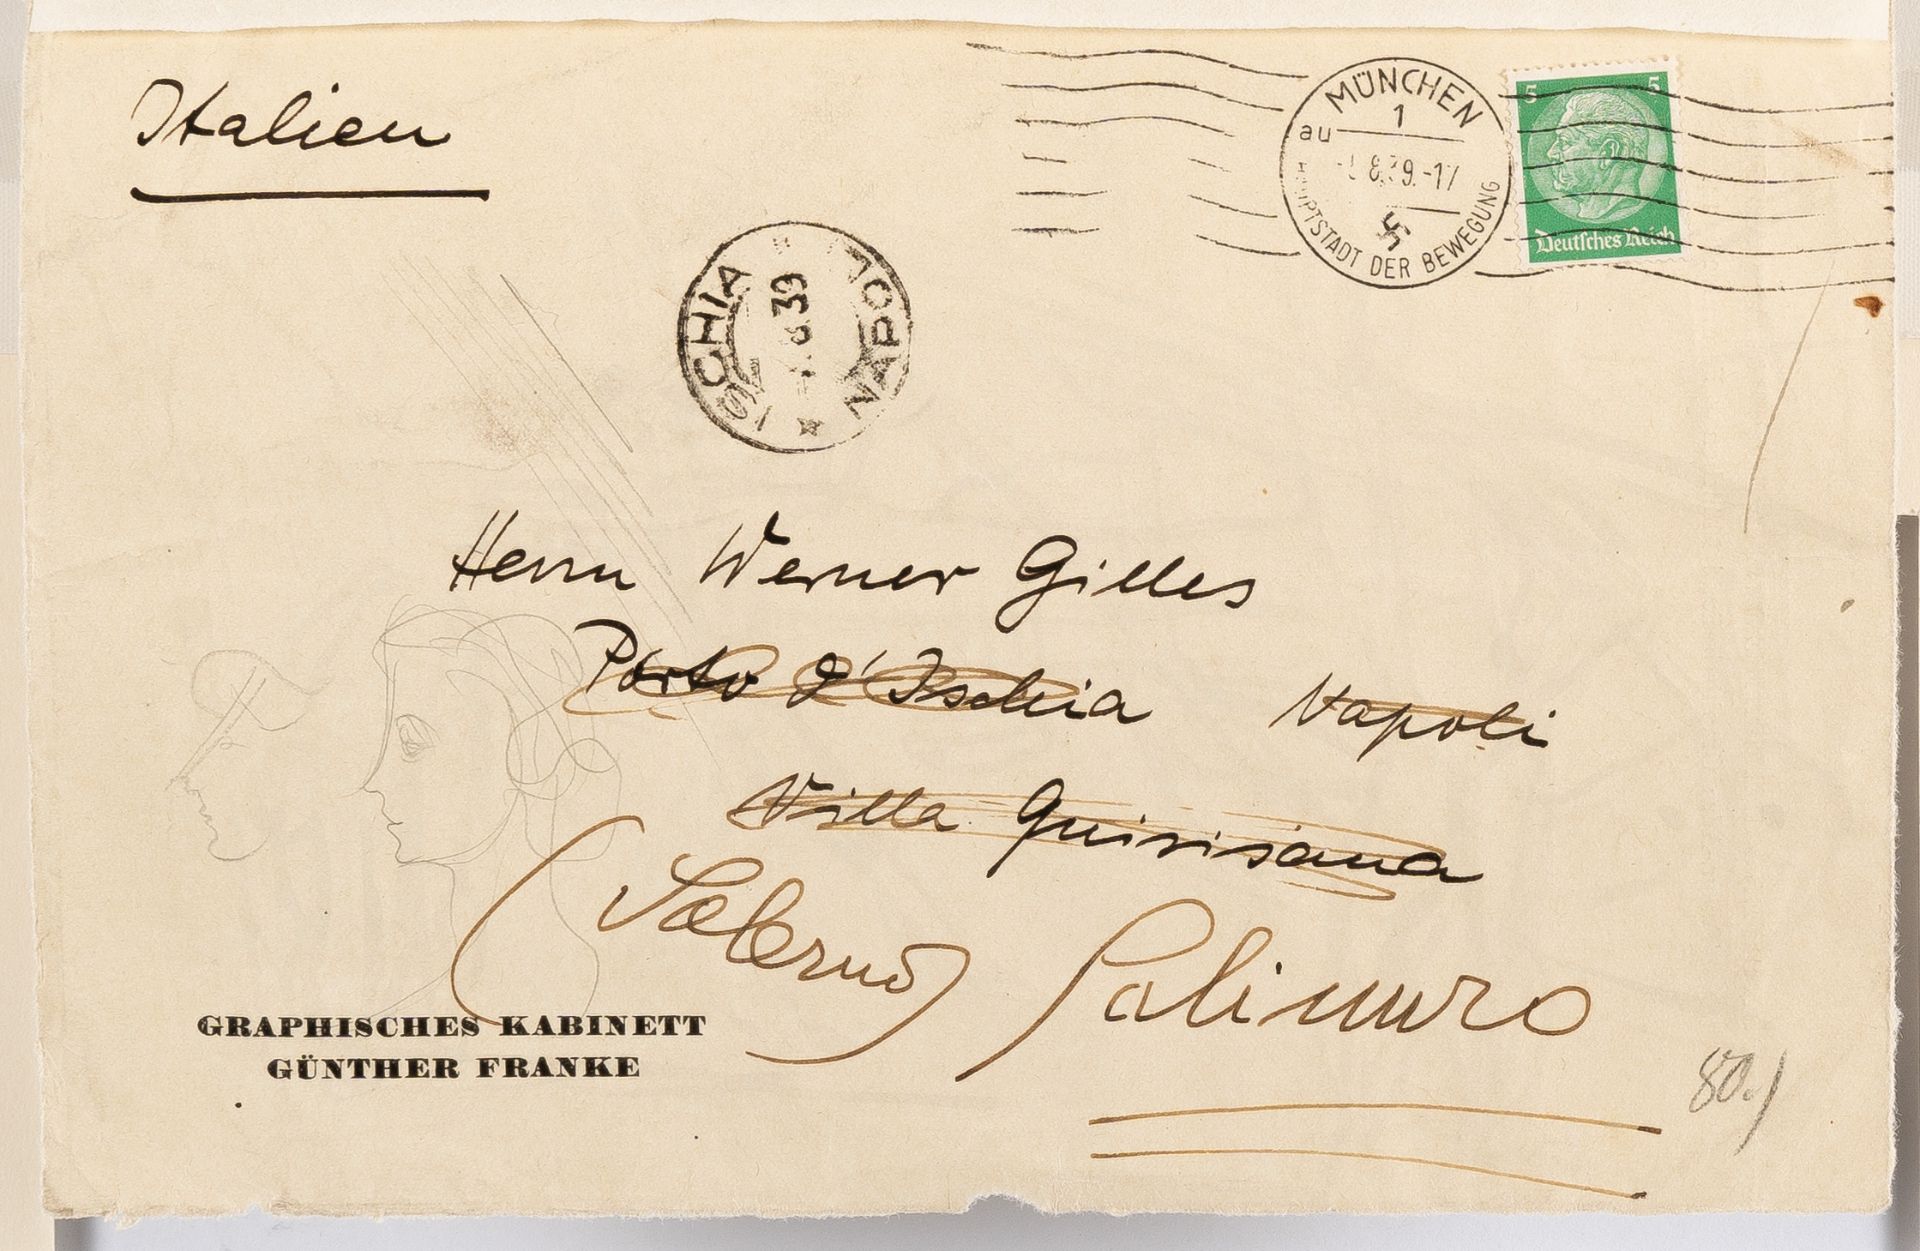 Italien
MÜNCHEN
1
au
8.39.-17
HAUPTSTADT DER BEWEGUNG
5 5
Deutsches Reich
ISCHIA
NAPOLI
8.39
Herrn Werner Gilles
Porto d'Ischia Napoli
Villa Quisisana
(Salerno) Palinuro
GRAPHISCHES KABINETT
GÜNTHER FRANKE
80.